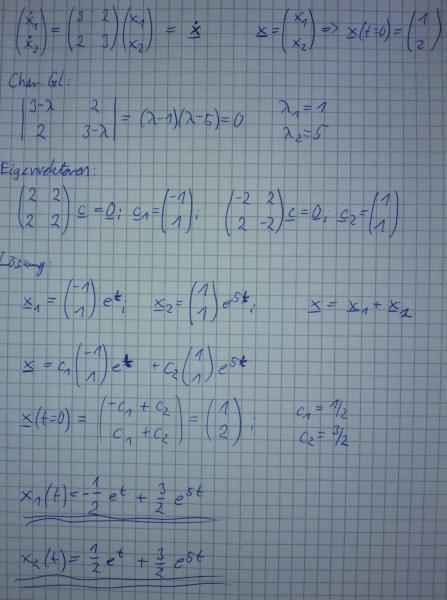 (ẋ₁ ẋ₂) = (3 2 2 3)(x₁ x₂) = ẋ x = (x₁ x₂) => x(t=0) = (1 2)
Char. Gl.:
|3-λ 2 2 3-λ| = (λ-1)(λ-5) = 0 λ₁ = 1 λ₂ = 5
Eigenvektoren:
(2 2 2 2) c = 0; c₁ = (-1 1); (-2 2 2 -2) c = 0; c₂ = (1 1)
Lösung:
x₁ = (-1 1) eᵗ; x₂ = (1 1) e⁵ᵗ; x = x₁ + x₂
x = c₁ (-1 1) eᵗ + c₂ (1 1) e⁵ᵗ
x(t=0) = (-c₁ + c₂ c₁ + c₂) = (1 2); c₁ = 1/2 c₂ = 3/2
x₁(t) = -1/2 eᵗ + 3/2 e⁵ᵗ
x₂(t) = 1/2 eᵗ + 3/2 e⁵ᵗ